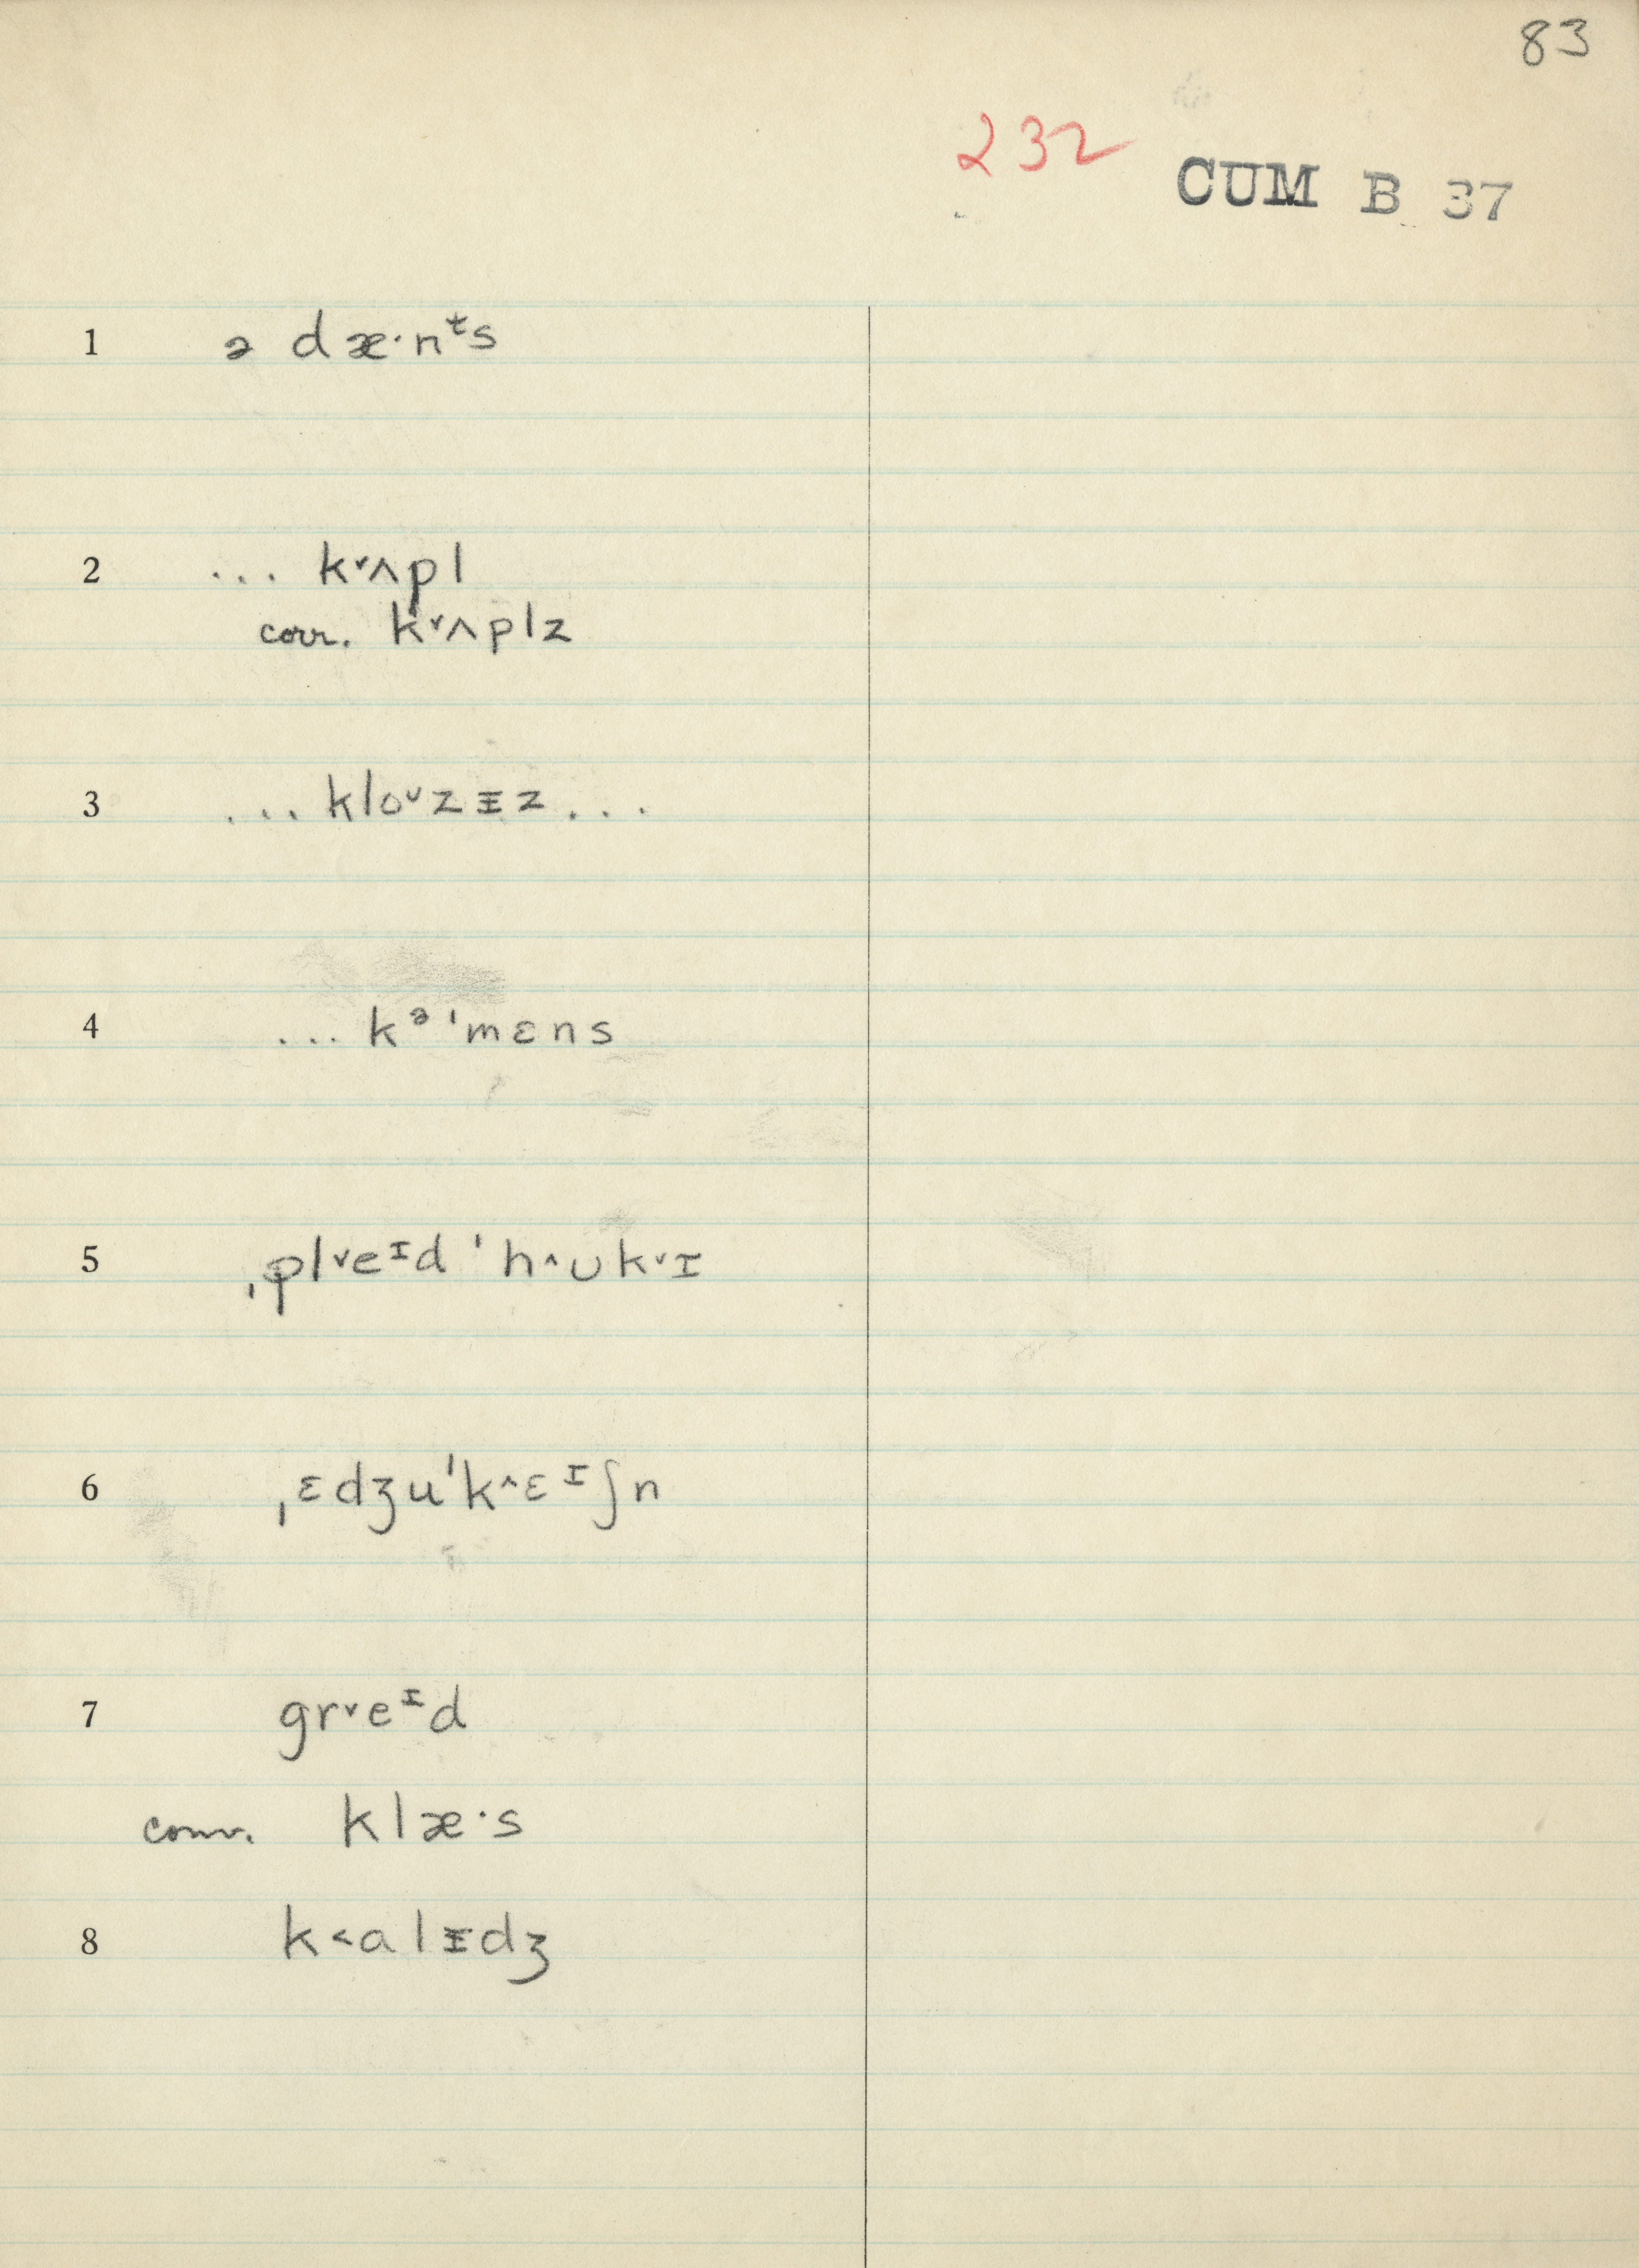 83
232
CUM B 37
1 ə dæ·nᵗs
2 ... k˅ʌpl
corr. k˅ʌplz
3 ... kloᶷzɪ̵z ...
4 ... kᵊˈmɛns
5 ˌpl˅eᶦd ˈh˄ʊk˅ɪ
6 ˌɛdʒuˈk˄ɛᶦʃn
7 gr˅eᶦd
conv. klæ·s
8 k˂alɪ̵dʒ